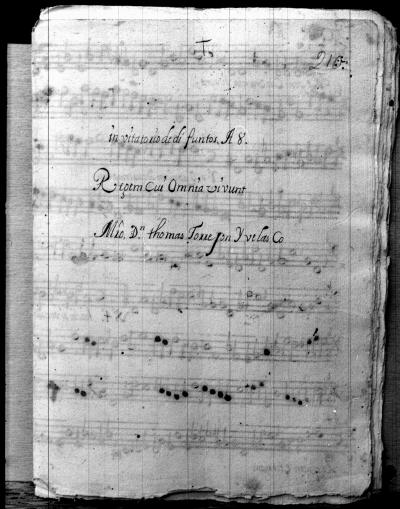 210.
invitatorio de difuntos. A 8.
Regem Cui Omnia vivunt
Mro. Dn. thomas Torrejon Y velasCo